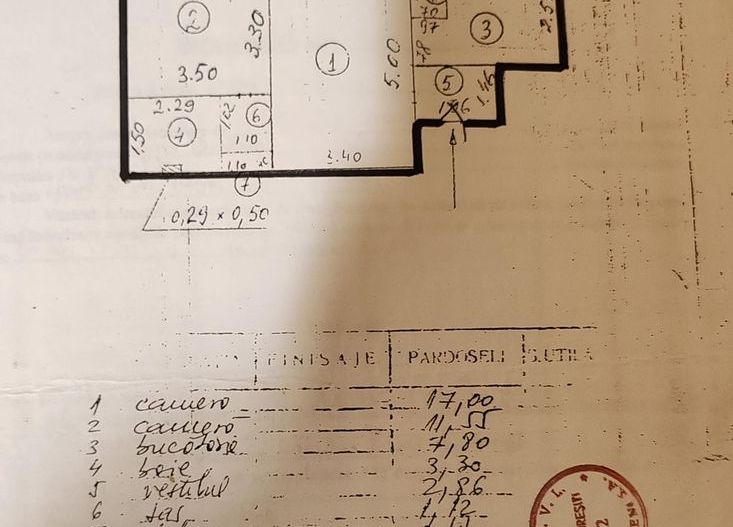 2
3.30
3.50
1
5.00
97
3
78
5
1.46
2.29
1.50
4
6
1.10
1.10
7
3.40
0,29 x 0,50
FINISAJE PARDOSELI S.UTILA
1 camera 17,00
2 camera 11,55
3 bucatarie 7,80
4 baie 3,30
5 vestibul 2,86
6 1,12